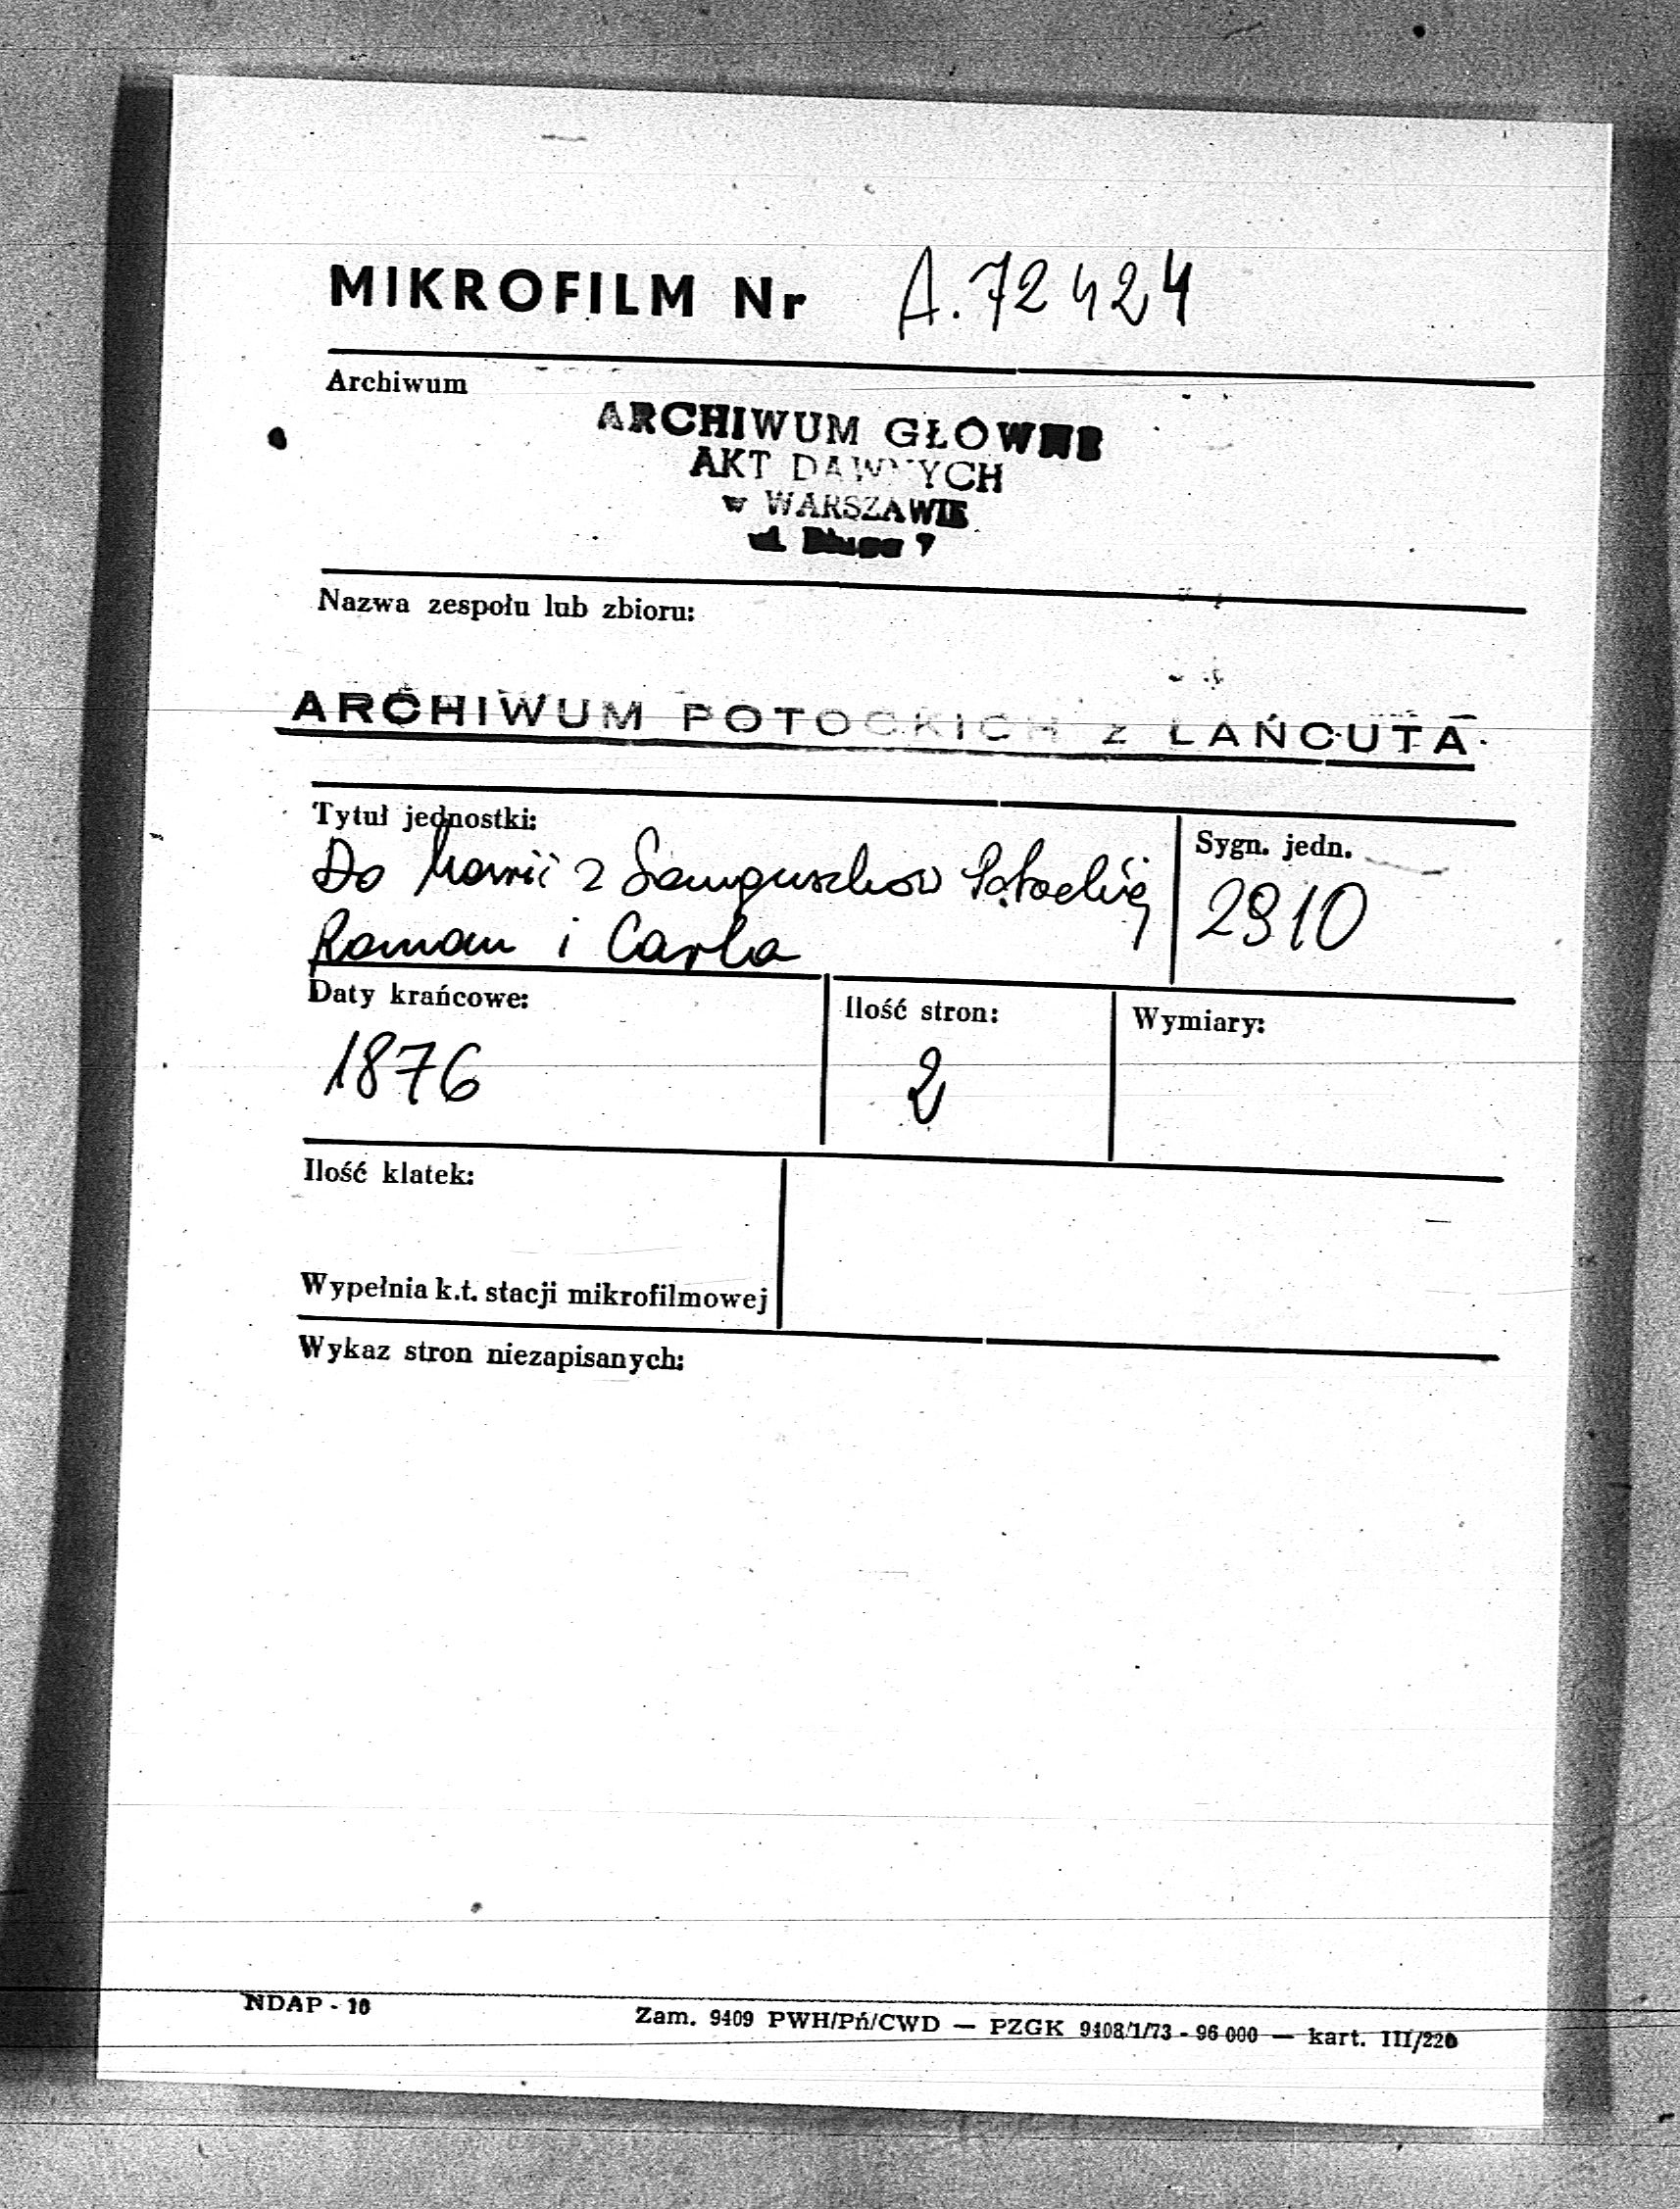 MIKROFILM Nr A. 72424
Archiwum
ARCHIWUM GŁÓWNE
AKT DAWNYCH
w WARSZAWIE
ul. Długa 7
Nazwa zespołu lub zbioru:
ARCHIWUM POTOCKICH z ŁAŃCUTA
Tytuł jednostki:
Do Marii z Sanguszków Potockiej
Roman i Carla
Sygn. jedn.
2910
Daty krańcowe:
1876
Ilość stron:
2
Wymiary:
Ilość klatek:
Wypełnia k.t. stacji mikrofilmowej
Wykaz stron niezapisanych:
NDAP - 10
Zam. 9409 PWH/Pń/CWD — PZGK 9408/1/73 - 96 000 — kart. III/220